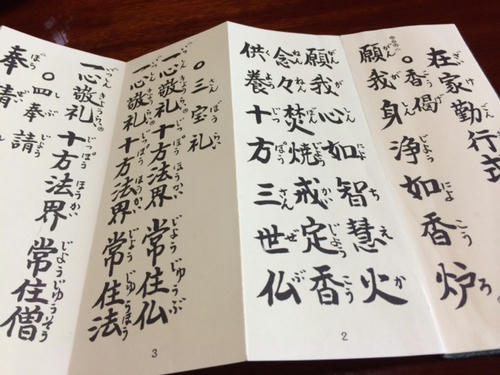 在家勤行式
〇香偈
願我身浄如香炉
願我心如智慧火
念々焚焼戒定香
供養十方三世仏
2
〇三宝礼
一心敬礼十方法界常住仏
一心敬礼十方法界常住法
3
一心敬礼十方法界常住僧
〇四奉請
奉請